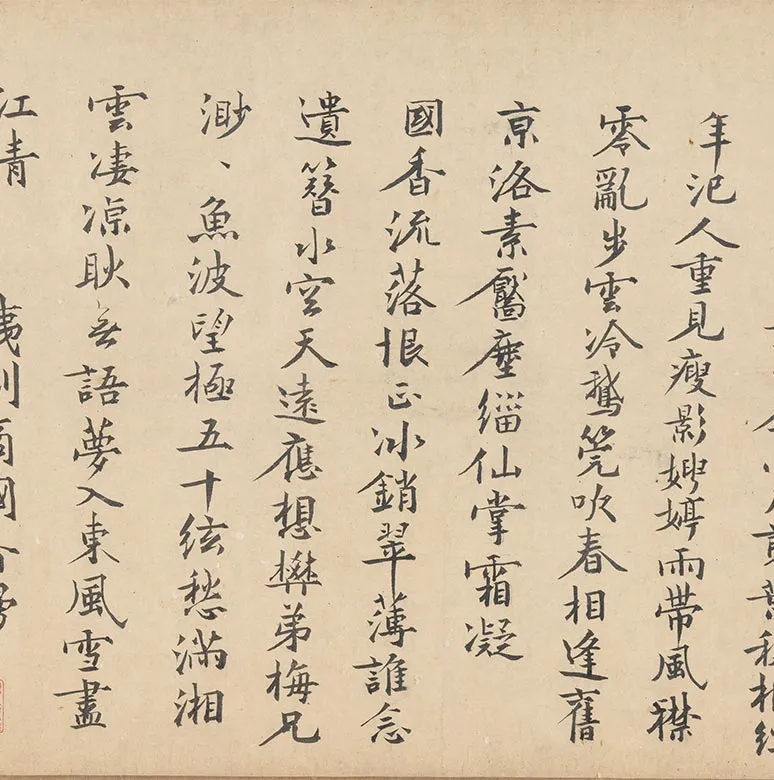 年汜人重見瘦影娉婷雨帶風襟
零亂步雲冷鵝筦吹春相逢舊
京洛素靨塵緇仙掌霜凝
國香流落恨正冰銷翠薄誰念
遺簪水空天遠應想礬弟梅兄
渺、魚波望極五十絃愁滿湘
雲凄凉耿無語夢入東風雪盡
江清 夷則商國香慢